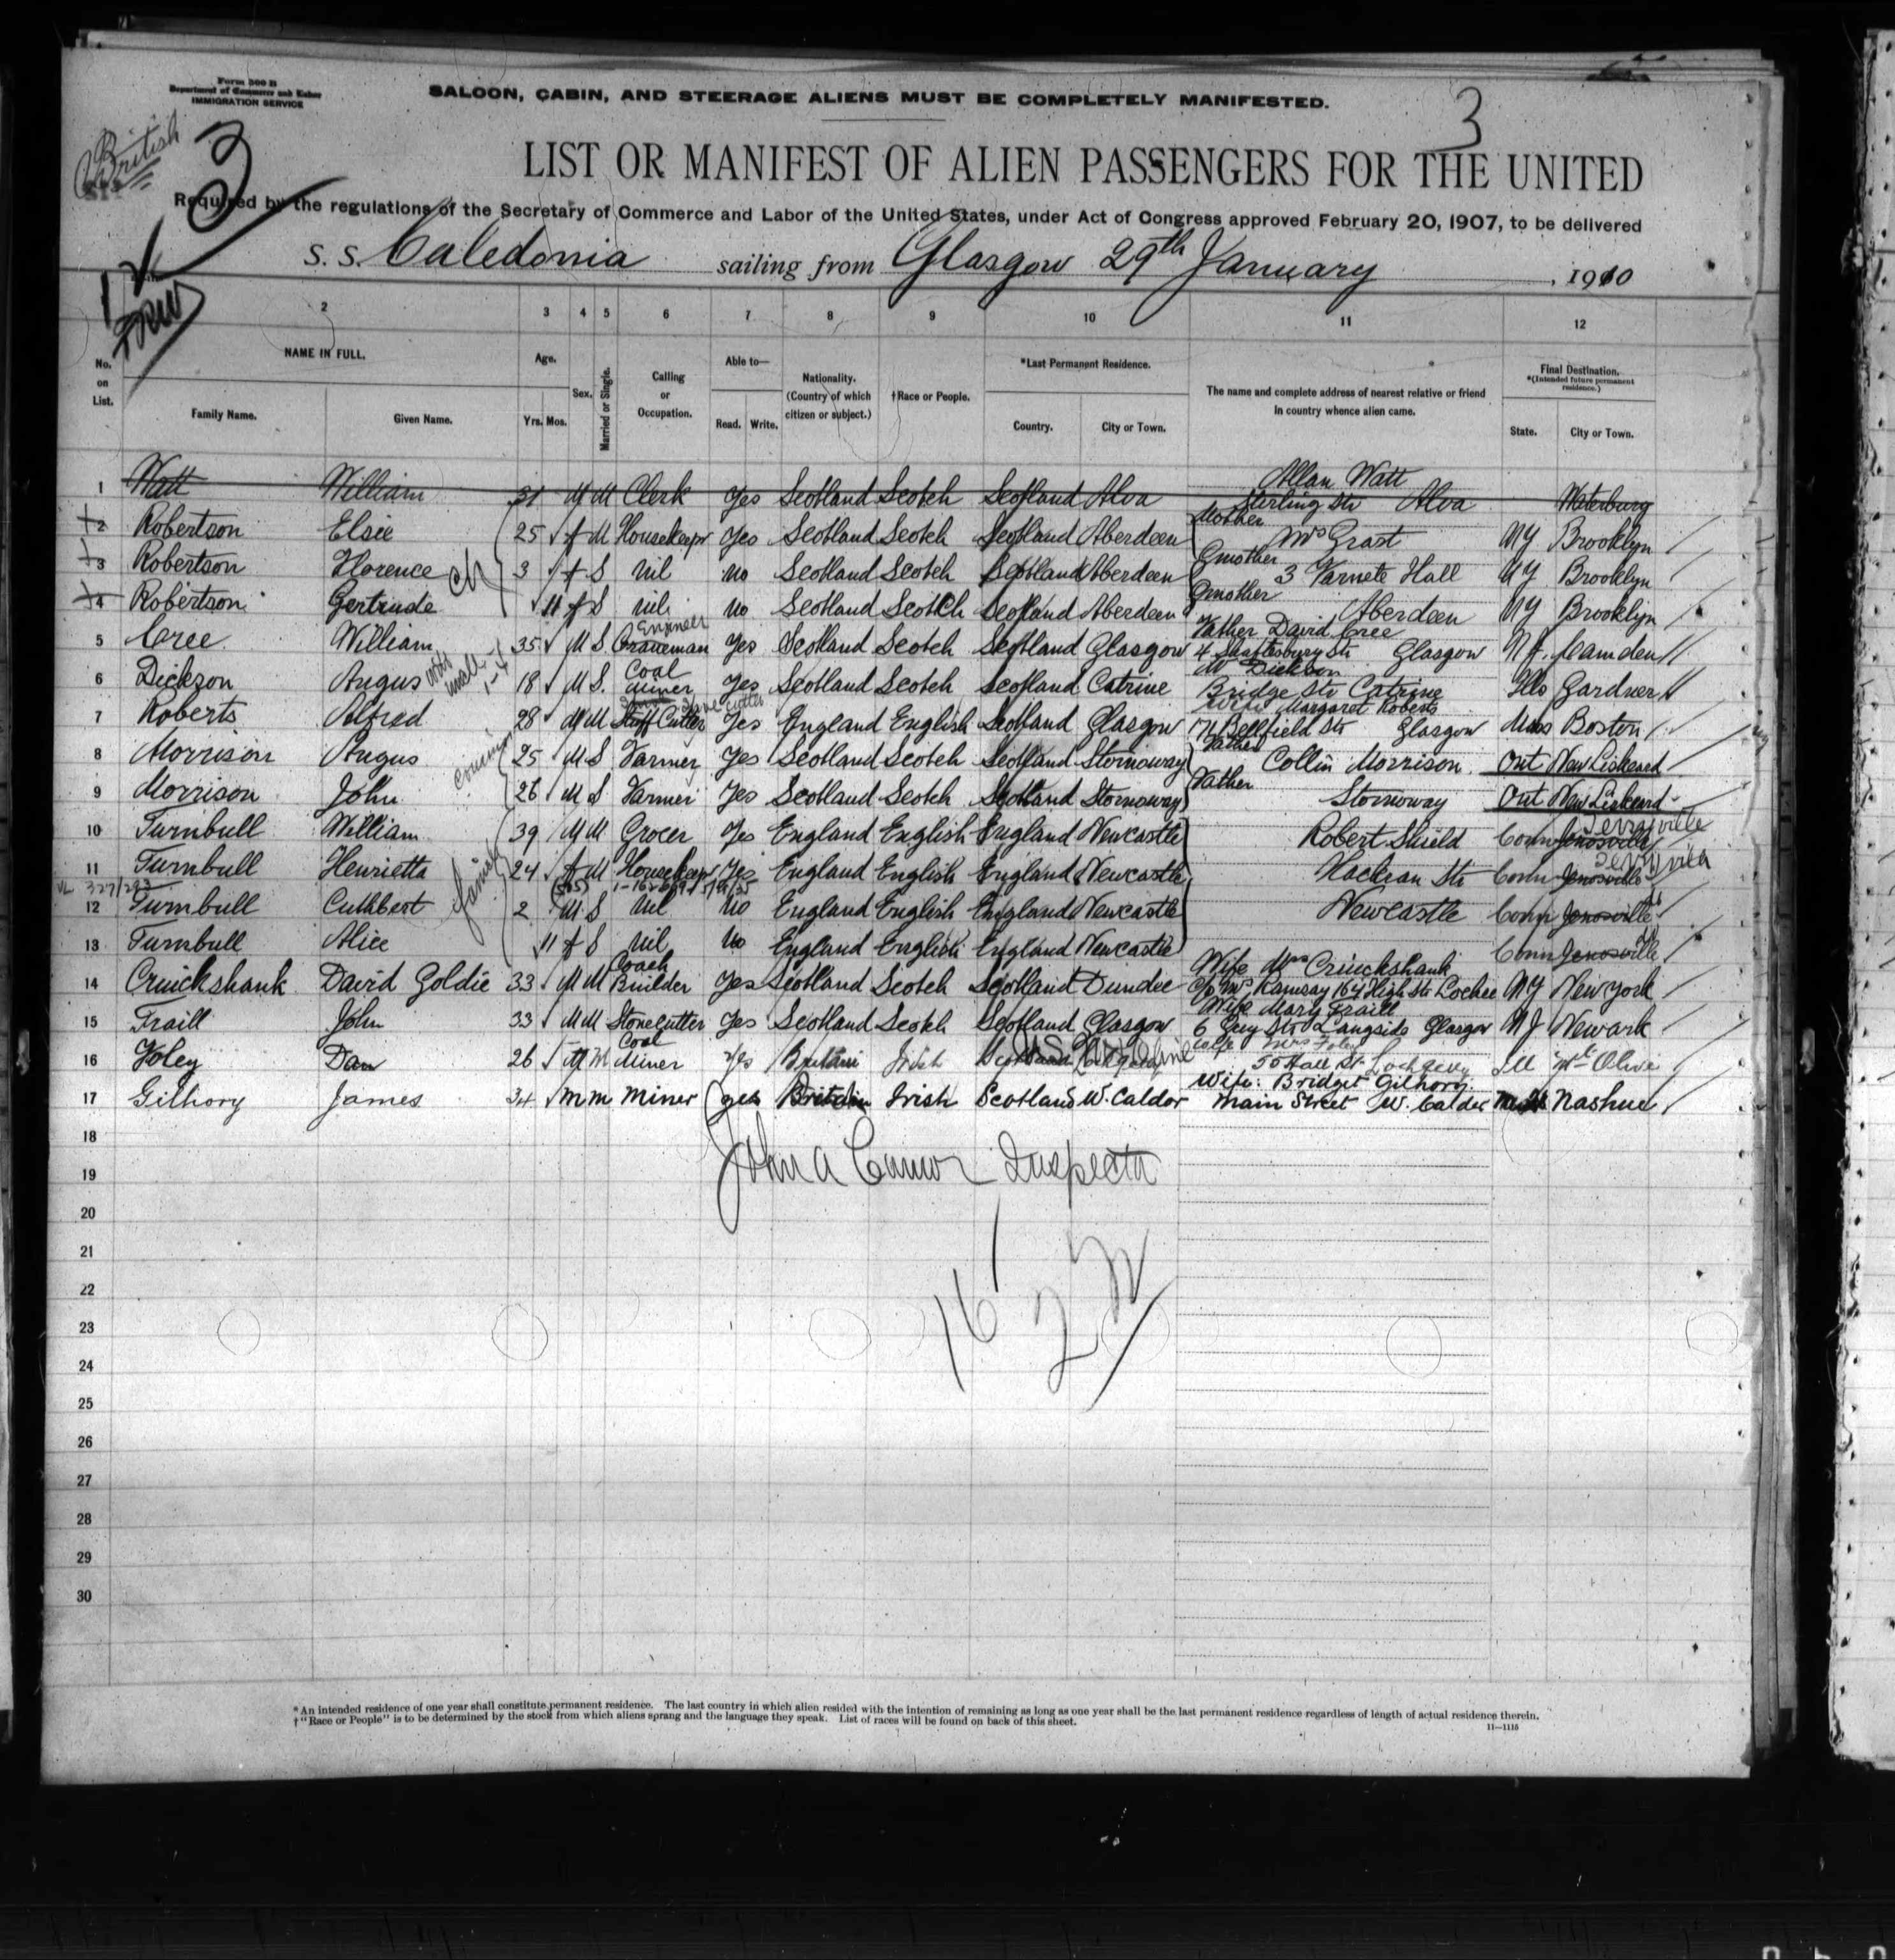 Form 500 B
Department of Commerce and Labor
IMMIGRATION SERVICE
SALOON, CABIN, AND STEERAGE ALIENS MUST BE COMPLETELY MANIFESTED.
British
3
3
LIST OR MANIFEST OF ALIEN PASSENGERS FOR THE UNITED
Required by the regulations of the Secretary of Commerce and Labor of the United States, under Act of Congress approved February 20, 1907, to be delivered
S. S. Caledonia sailing from Glasgow 29th January, 1910
2 3 4 5 6 7 8 9 10 11 12
No. on List.
NAME IN FULL.
Family Name. Given Name.
Age. Yrs. Mos.
Sex.
Married or Single.
Calling or Occupation.
Able to— Read. Write.
Nationality. (Country of which citizen or subject.)
†Race or People.
*Last Permanent Residence. Country. City or Town.
The name and complete address of nearest relative or friend in country whence alien came.
Final Destination. *(Intended future permanent residence.) State. City or Town.
1 Watt William 31 M M Clerk Yes Scotland Scotch Scotland Alva Allan Watt Stirling Str Alva
2 Robertson Elsie 25 f M Housekeeper Yes Scotland Scotch Scotland Aberdeen Mother Mrs Grast NY Brooklyn
3 Robertson Florence 3 f S nil no Scotland Scotch Scotland Aberdeen Gmother 3 Hall NY Brooklyn
4 Robertson Gertrude 11 f S nil no Scotland Scotch Scotland Aberdeen Gmother Aberdeen NY Brooklyn
5 Cree William 35 M S Engineer Yes Scotland Scotch Scotland Glasgow Father David Cree 4 Shaftesbury Str Glasgow N.J. Camden
6 Dickson Angus 18 M S. Coal Miner Yes Scotland Scotch Scotland Catrine Dickson Bridge Str Catrine Ills Gardner
7 Roberts Alfred 28 M M Cutter Yes England English Scotland Glasgow Wife Margaret Roberts 71 Bellfield Str Glasgow Mass Boston
cousins
8 Morrison Angus 25 M S Farmer Yes Scotland Scotch Scotland Stornoway Father Collin Morrison Ont New Liskeard
9 Morrison John 26 M S Farmer Yes Scotland Scotch Scotland Stornoway Father Stornoway Ont New Liskeard
family
10 Turnbull William 39 M M Grocer Yes England English England Newcastle Robert Shield Conn Jenosville Terryville
11 Turnbull Henrietta 24 f M Housekeeper Yes England English England Newcastle Str Conn Jenosville Terryville
12 Turnbull Cuthbert 2 M S nil no England English England Newcastle Newcastle Conn Jenosville
13 Turnbull Alice 11 f S nil no England English England Newcastle Conn Jenosville
14 Cruickshank David Goldie 33 M M Coach Builder Yes Scotland Scotch Scotland Dundee Wife Mrs Cruickshank c/o Mrs Ramsay 164 High Str Lochee NY New York
15 Traill John 33 M M Stonecutter Yes Scotland Scotch Scotland Glasgow Wife Mary Traill 6 Guy Str Langside Glasgow NJ Newark
16 Foley Dan 26 M M Coal Miner Yes Britain Irish Scotland Wife Mrs Foley 50 Hall St Lochgelly Ill Mt Olive
17 Gilhory James 34 m m Miner yes Britain Irish Scotland W. Caldor Wife: Bridget Gilhory Main Street W. Calder Nashue
18
John A Connor Inspector
19
20
21
22
16
23
24
25
26
27
28
29
30
*An intended residence of one year shall constitute permanent residence. The last country in which alien resided with the intention of remaining as long as one year shall be the last permanent residence regardless of length of actual residence therein.
†"Race or People" is to be determined by the stock from which aliens sprang and the language they speak. List of races will be found on back of this sheet.
11—1115